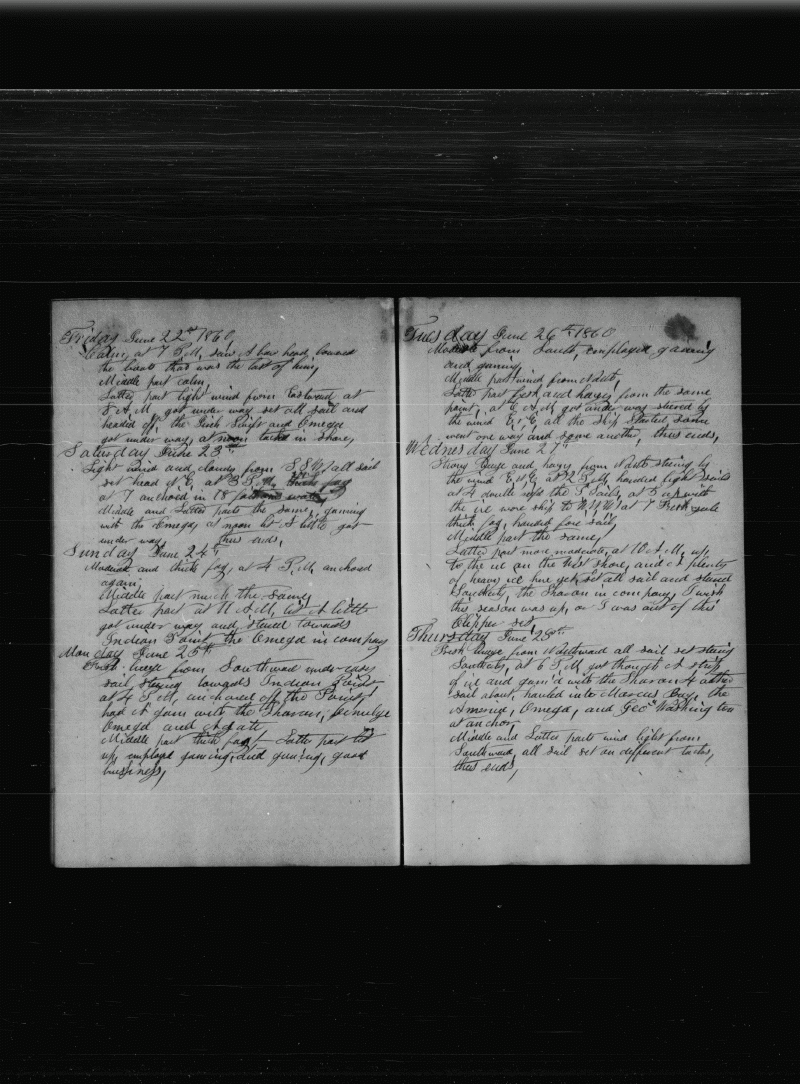 Friday June 22nd 1860
Calm, at 7 P.M. saw A bow head, lowered
the boats that was the last of him,
Middle part calm,
Latter part light wind from Eastward at
8 A.M. got under way set all sail and
headed off, the Swift and Omega
got under way, at noon tacked in shore,
Saturday June 23rd
Light wind and cloudy from S.S.W. all sail
set head N.E. at 3 P.M. thick fog
at 7 anchored in 18 fathoms water
Middle and Latter parts the same, gamming
with the Omega, at noon lit A little got
under way, thus ends,
Sunday June 24th
Moderate and thick fog, at 4 P.M. anchored
again,
Middle part much the same,
Latter part at 11 A.M. lit A little
got under way and steered towards
Indian Point the Omega in company
Monday June 25th
Fresh breeze from Southward under easy
sail steering towards Indian Point
at 4 P.M. anchored off the Point,
had A gam with the Sharon,
Omega and Agate,
Middle part thick fog, Latter part lit
up, employed gamming and gamming, good
business,
Tuesday June 26th 1860
Moderate from South, employed gamming
and gamming,
Middle part wind from North,
Latter part fresh and hazy from the same
point, at 6 A.M. got under way steered by
the wind E.N.E. all the ship started, some
went one way and some another, thus ends,
Wednesday June 27th
Strong breeze and hazy from North steering by
the wind E.N.E. at 2 P.M. handed light sails
at 4 double reefs the T Sails, at 5 up with
the ice wore ship to W.N.W. at 7 Fresh gale
thick fog, handed fore sail,
Middle part the same,
Latter part more moderate, at 10 A.M. up
to the ice on the West shore, and A plenty
of heavy ice here yet, set all sail and steered
Southerly, the Sharon in company, I wish
this season was up, or I was out of this
Clipper
Thursday June 28th
Fresh breeze from Westward all sail set steering
Southerly, at 6 P.M. got through A strip
of ice and gam'd with the Sharon &
sail about, hauled into Marcus Bay, the
America, Omega, and Geo Washington
at anchor,
Middle and Latter parts wind light from
Southward, all sail set on different tacks,
thus ends,